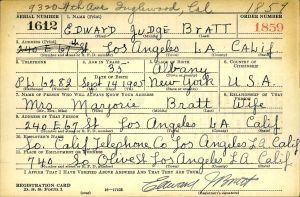 9320 4th Ave Inglewood, Cal 1859
SERIAL NUMBER 1. NAME (Print) ORDER NUMBER
1612 EDWARD JUDGE BRATT 1859
2. ADDRESS (Print)
240 E 67 St Los Angeles L.A. Calif
3. TELEPHONE 4. AGE IN YEARS 5. PLACE OF BIRTH 6. COUNTRY OF CITIZENSHIP
35 Albany
DATE OF BIRTH
Sept 14 1905 New York U.S.A.
7. NAME OF PERSON WHO WILL ALWAYS KNOW YOUR ADDRESS
Mrs. Marjorie Bratt Wife
9. ADDRESS OF THAT PERSON
240 E 67 St Los Angeles L.A. Calif
10. EMPLOYER'S NAME
So. Calif Telephone Co Los Angeles L.A. Calif
11. PLACE OF EMPLOYMENT OR BUSINESS
740 So. Olive St Los Angeles L.A. Calif
I AFFIRM THAT I HAVE VERIFIED ABOVE ANSWERS AND THAT THEY ARE TRUE.
REGISTRATION CARD
D. S. S. Form 1
Edward J Bratt